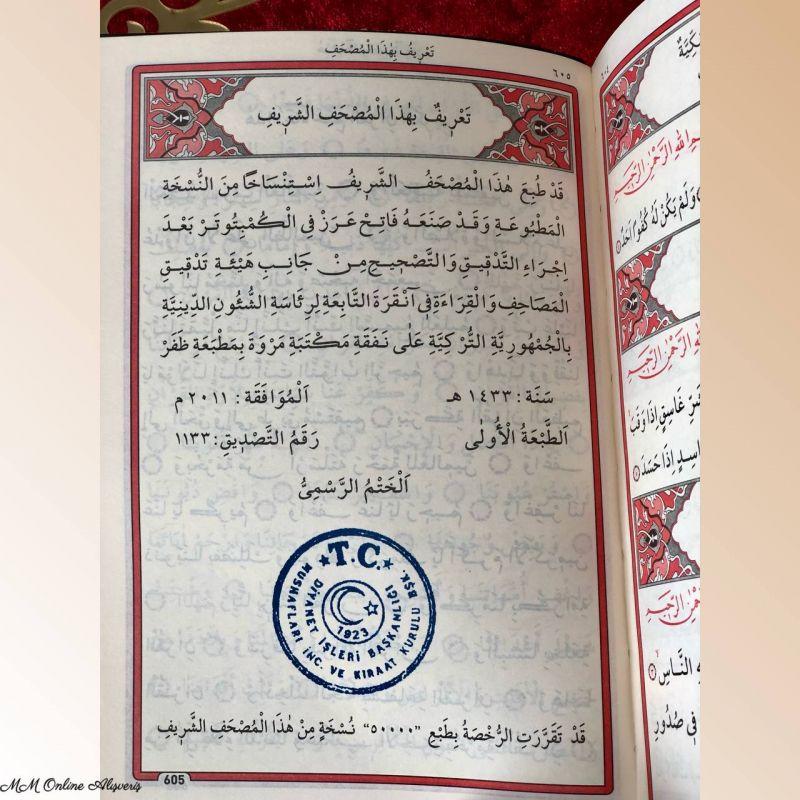 تَعْرِيفُ بِهٰذَا الْمُصْحَفِ
٦٠٥
تَعْرِيفٌ بِهٰذَا الْمُصْحَفِ الشَّرِيفِ
قَدْ طُبِعَ هٰذَا الْمُصْحَفُ الشَّرِيفُ اِسْتِنْسَاخًا مِنَ النُّسْخَةِ
الْمَطْبُوعَةِ وَقَدْ صَنَعَهُ فَاتِحْ عَرَزْ فِي الْكُمْبِيُوتَرْ بَعْدَ
اِجْرَاءِ التَّدْقِيقِ وَالتَّصْحِيحِ مِنْ جَانِبِ هَيْئَةِ تَدْقِيقِ
الْمَصَاحِفِ وَالْقِرَاءَةِ فِي آنْقَرَةَ التَّابِعَةِ لِرِئَاسَةِ الشُّئُونِ الدِّينِيَّةِ
بِالْجُمْهُورِيَّةِ التُّرْكِيَّةِ عَلٰى نَفَقَةِ مَكْتَبَةِ مَرْوَةَ بِمَطْبَعَةِ ظَفَرْ
سَنَة : ١٤٣٣ هـ اَلْمُوَافَقَة : ٢٠١١ م
اَلطَّبْعَةُ الْأُولٰى رَقَمُ التَّصْدِيقِ : ١١٣٣
اَلْخَتْمُ الرَّسْمِيُّ
T.C.
MUSHAFLARI İNC. VE KIRAAT KURULU BŞK.
DİYANET İŞLERİ BAŞKANLIĞI
1923
قَدْ تَقَرَّرَتِ الرُّخْصَةُ بِطَبْعِ "٥٠٠٠٠" نُسْخَةٍ مِنْ هٰذَا الْمُصْحَفِ الشَّرِيفِ
605
وَلَمْ يَكُنْ لَهُ كُفُوًا اَحَدٌ
غَاسِقٍ اِذَا وَقَبَ
اِذَا حَسَدَ
النَّاسِ
فِي صُدُورِ
MM Online Alışveriş